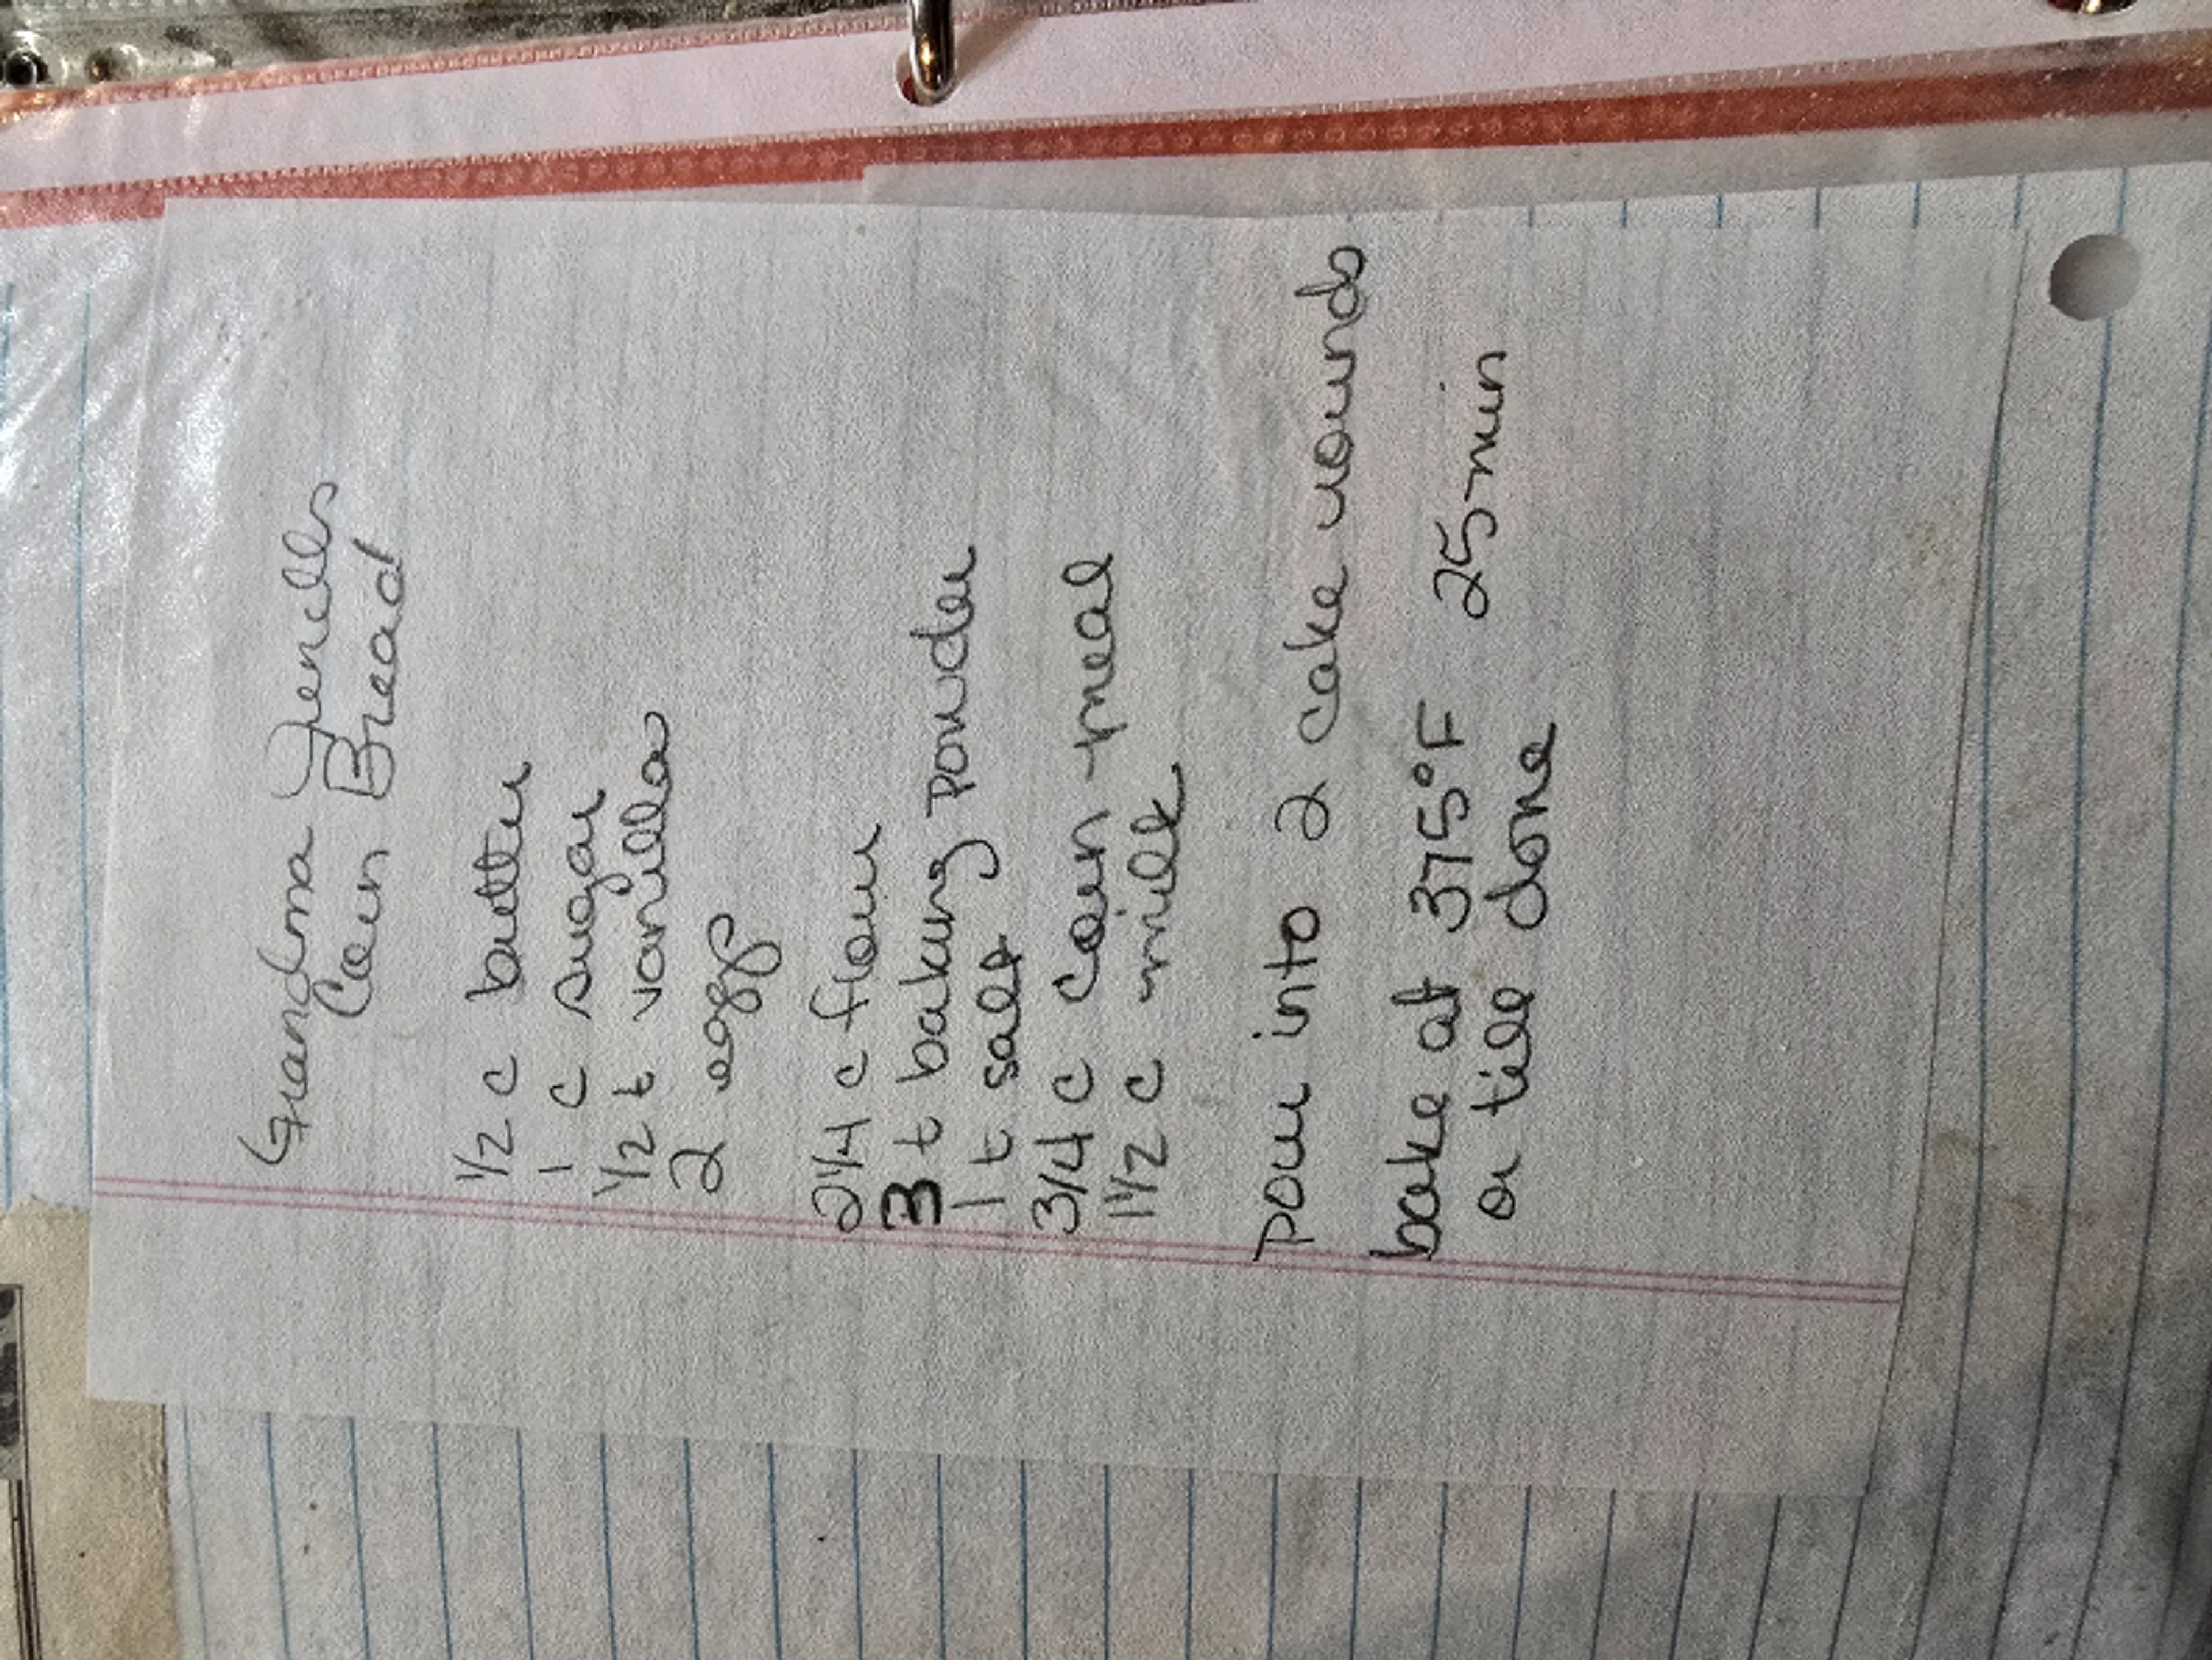 Grandma Jenells
Corn Bread
1/2 c butter
1 c sugar
1/2 t vanilla
2 eggs
2 1/4 c flour
3 t baking powder
1 t salt
3/4 c corn meal
1 1/2 c milk
pour into 2 cake rounds
bake at 375°F 25 min
or till done